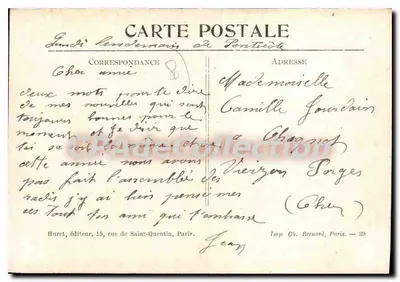 CARTE POSTALE
Lundi lendemain de Pentecôte
CORRESPONDANCE
ADRESSE
Cher amie
deux mots pour te dire
de mes nouvelles qui sont
toujours bonnes pour le
moment et je désire que
cette année nous avons
pas fait l'assemblée des
radis j'y ai bien pensé mes
ces tout ton ami qui t'embrasse
Jean
Mademoiselle
Camille Jourdain
a
Vierzon Forges
(Cher)
Huret, éditeur, 15, rue de Saint-Quentin, Paris.
Imp. Ch. Bernard, Paris. — 39